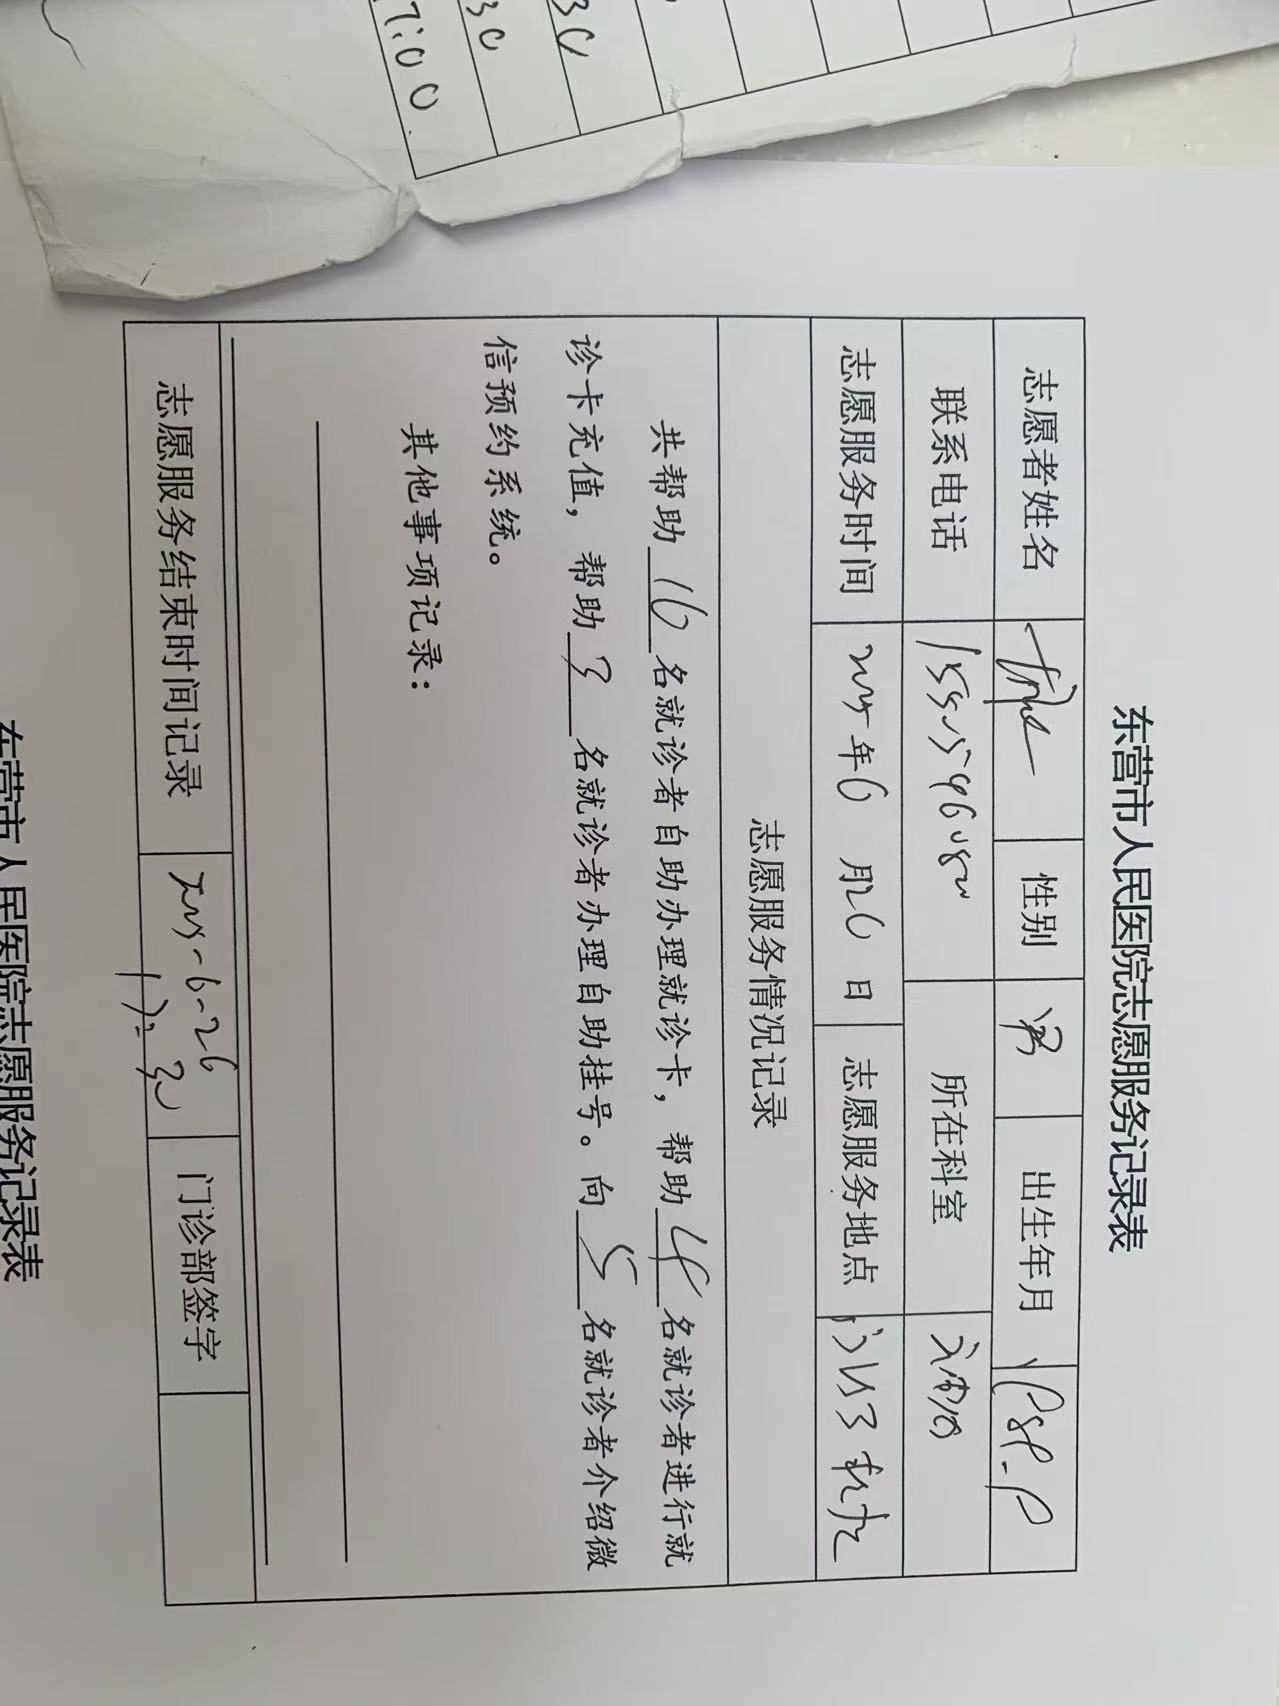 7:00
30
30
东营市人民医院志愿服务记录表
志愿者姓名 性别 男 出生年月
联系电话 所在科室
志愿服务时间 年6月26日 志愿服务地点
志愿服务情况记录
共帮助 16 名就诊者自助办理就诊卡，帮助 4 名就诊者进行就
诊卡充值，帮助 3 名就诊者办理自助挂号。向 5 名就诊者介绍微
信预约系统。
其他事项记录：
志愿服务结束时间记录 2025-6-26 门诊部签字
17:30
东营市人民医院志愿服务记录表